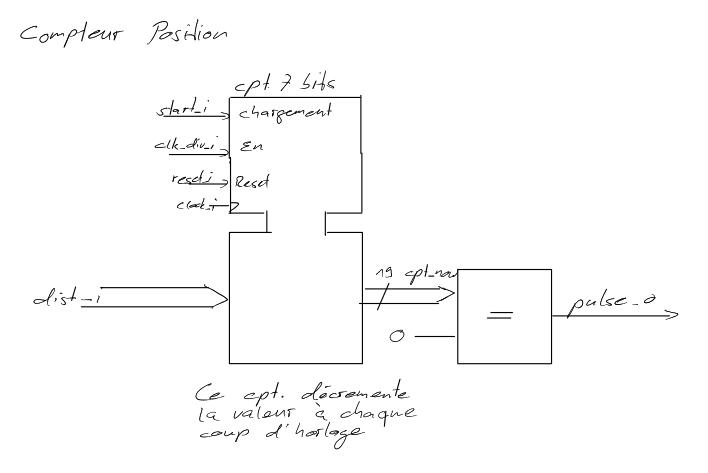 Compteur Position
cpt 7 bits
start_i
chargement
clk_div_i
En
reset_i
Reset
clock_i
dist_i
19 cpt_now
0
=
pulse_o
Ce cpt. décremente
la valeur à chaque
coup d'horlage